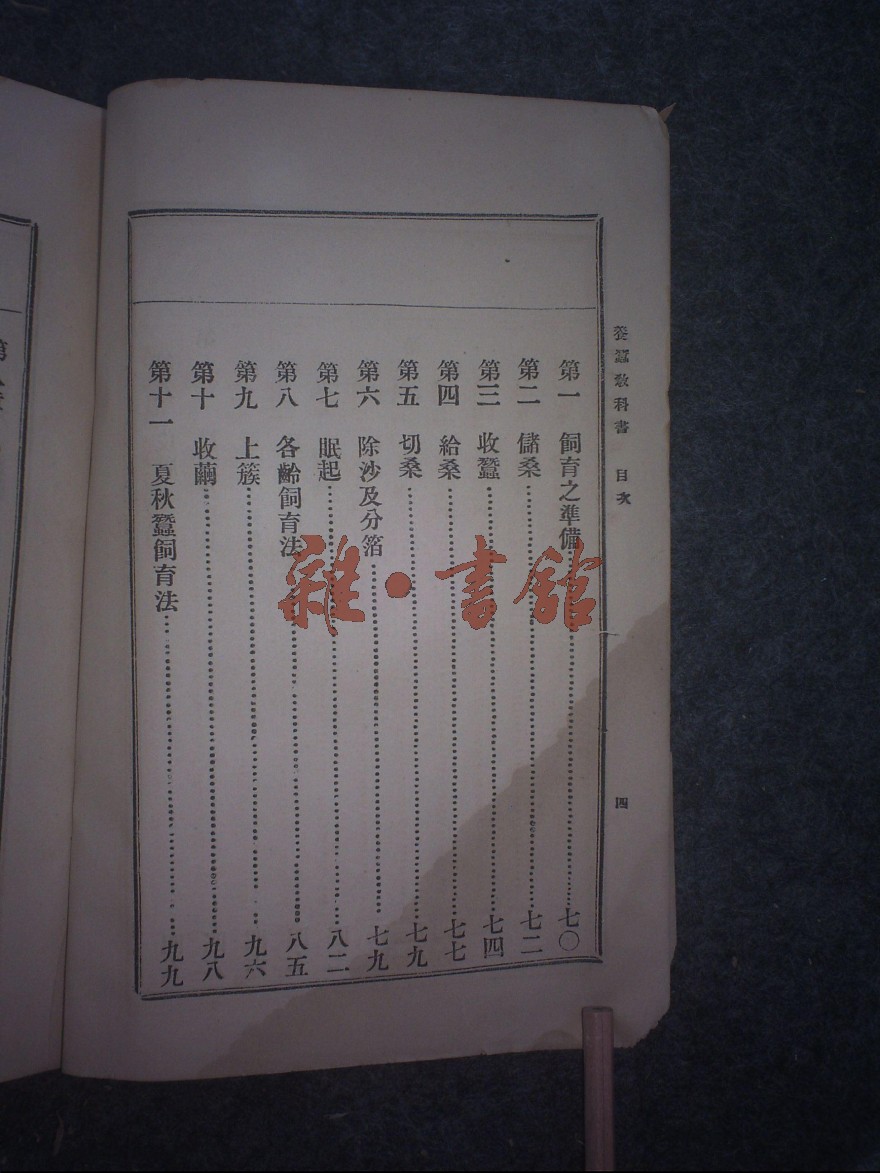 養蠶教科書 目次 四
第一 飼育之準備 七〇
第二 儲桑 七二
第三 收蠶 七四
第四 給桑 七七
第五 切桑 七九
第六 除沙及分箔 七九
第七 眠起 八二
第八 各齡飼育法 八五
第九 上簇 九六
第十 收繭 九八
第十一 夏秋蠶飼育法 九九
雜·書館